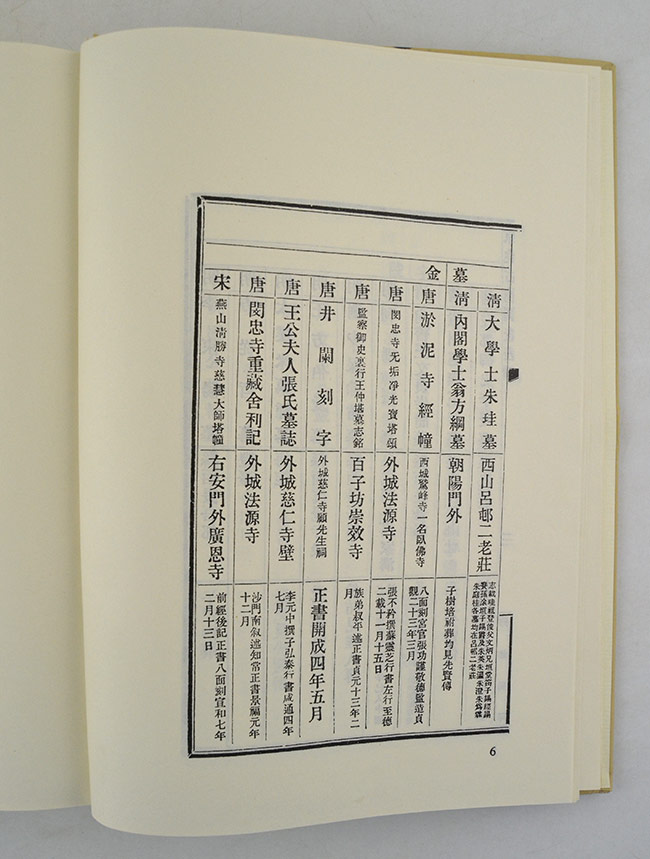 墓
金
清 大學士朱珪墓 西山呂邨二老莊
清 內閣學士翁方綱墓 朝陽門外 子樹培祔葬均見先賢傳
唐 淤泥寺經幢 西城鷲峰寺一名臥佛寺 八面刻宮官張功謹敬德監造貞
觀二十三年三月
唐 閔忠寺无垢凈光寶塔頌 外城法源寺 張不矜撰蘇靈芝行書左行至德
二載十一月十五日
唐 監察御史裏行王仲堪墓志銘 百子坊崇效寺 族弟叔平述正書貞元十三年二
月
唐 井闌刻字 外城慈仁寺顧先生祠 正書開成四年五月
唐 王公夫人張氏墓誌 外城慈仁寺壁 李元中撰子弘泰行書咸通四年
七月
唐 閔忠寺重藏舍利記 外城法源寺 沙門南叙述知常正書景福元年
十二月
宋 燕山清勝寺慈慧大師塔幢 右安門外廣恩寺 前經後記正書八面刻宣和七年
二月十三日
6